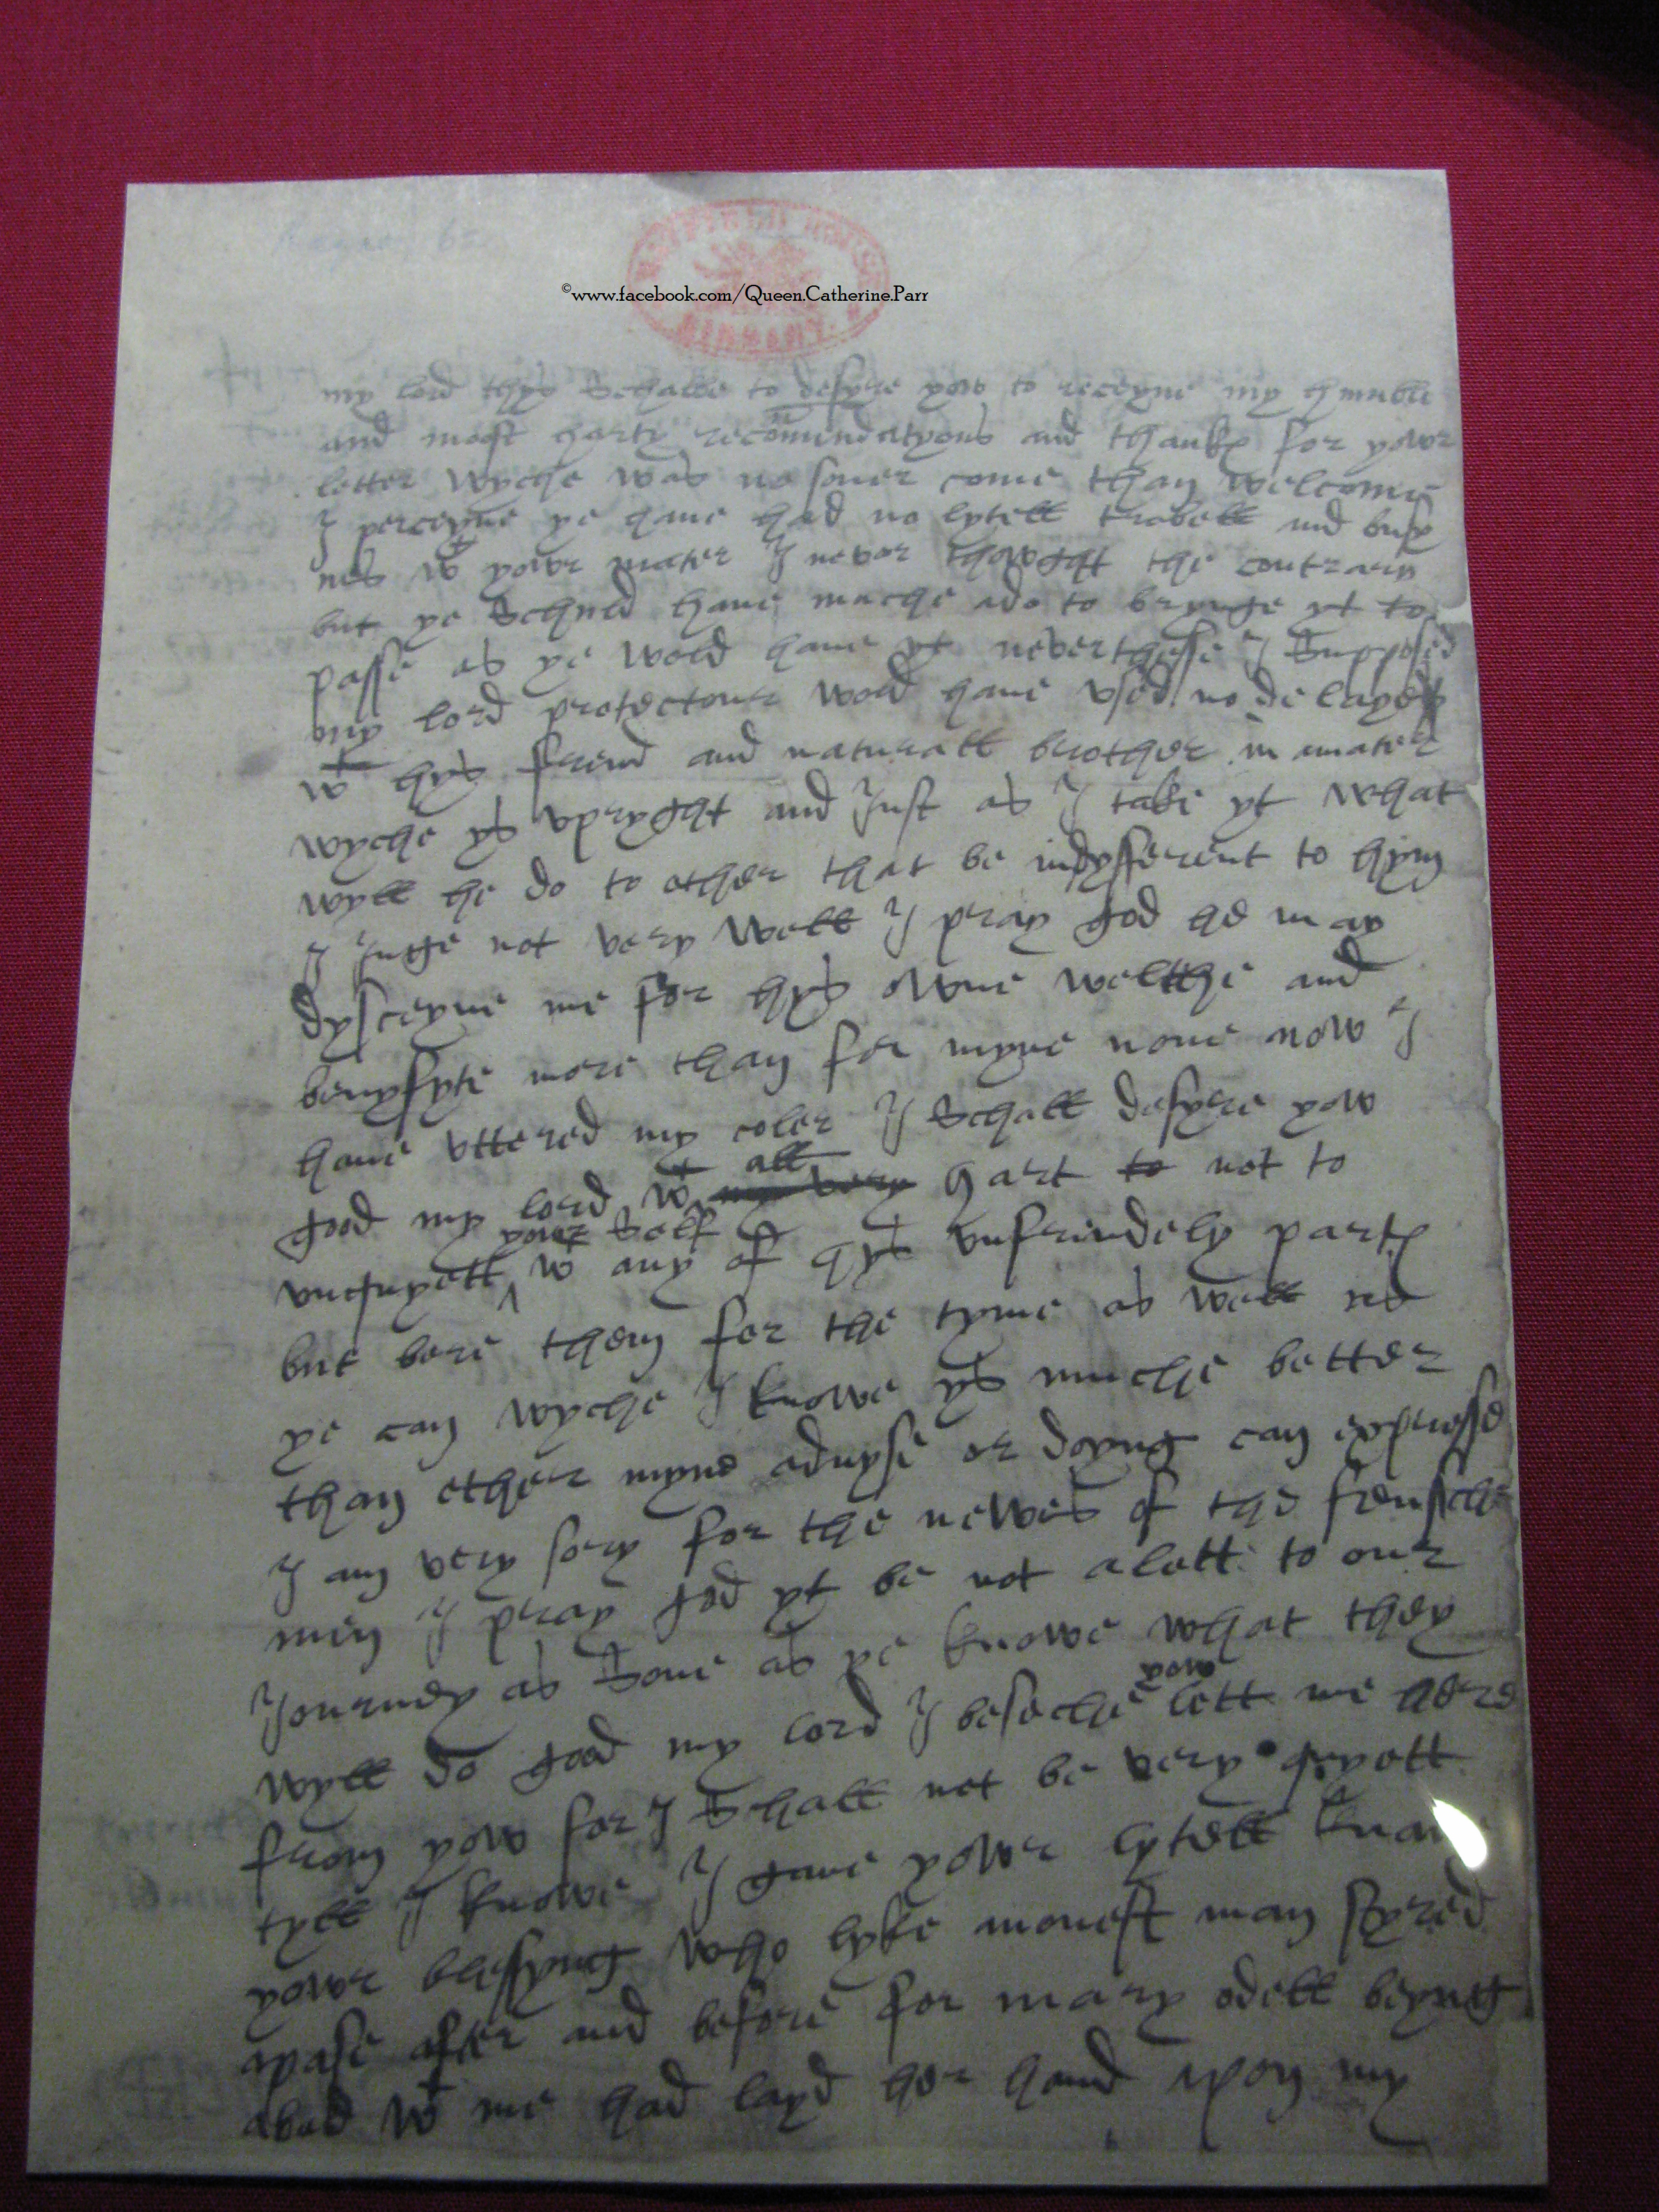 HATFIELD HOUSE
LIBRARY
©www.facebook.com/Queen.Catherine.Parr
my lord thys Schalbe to desyre yow to receyve my humble
and most harty recommendatyons and thankes for your
letter wyche was no soner come than welcome
I perceyve ye have had no lytell trobell and busy
nes wt your mater I never thowght the contrary
but ye Schuld have muche ado to brynge yt to
passe as ye wold have yt neverthesse I Supposed
my lord protectour wold have vsed no delayes
wt hys frend and naturall brother in a mater
wyche ys vpryght and Just as I take yt what
wyll he do to other that be indyfferent to hym
I Juge not very well I pray god he may
dysceyve me for hys owne welthe and
benyfyte more than for myne none now I
have vttered my coler I Schall desyre yow
good my lord wt all my very hart to not to
vnquyett your Self wt any of hys vnfrindely partes
but bere them for the tyme as well as
ye can wyche I knowe ys muche better
than ether myne advyse or doyng can expresse
I am very sory for the newes of the frensche
men I pray god yt be not a lett to our
Journey as Sone as ye knowe what they
wyll do good my lord I beseche yow lett me here
from yow for I Schall not be very quyett
tyll I knowe I gave your lytell knave
your blessyng who lyke a monest man styred
apase after and before for mary odell beyng
abed wt me had layd her hand apon my